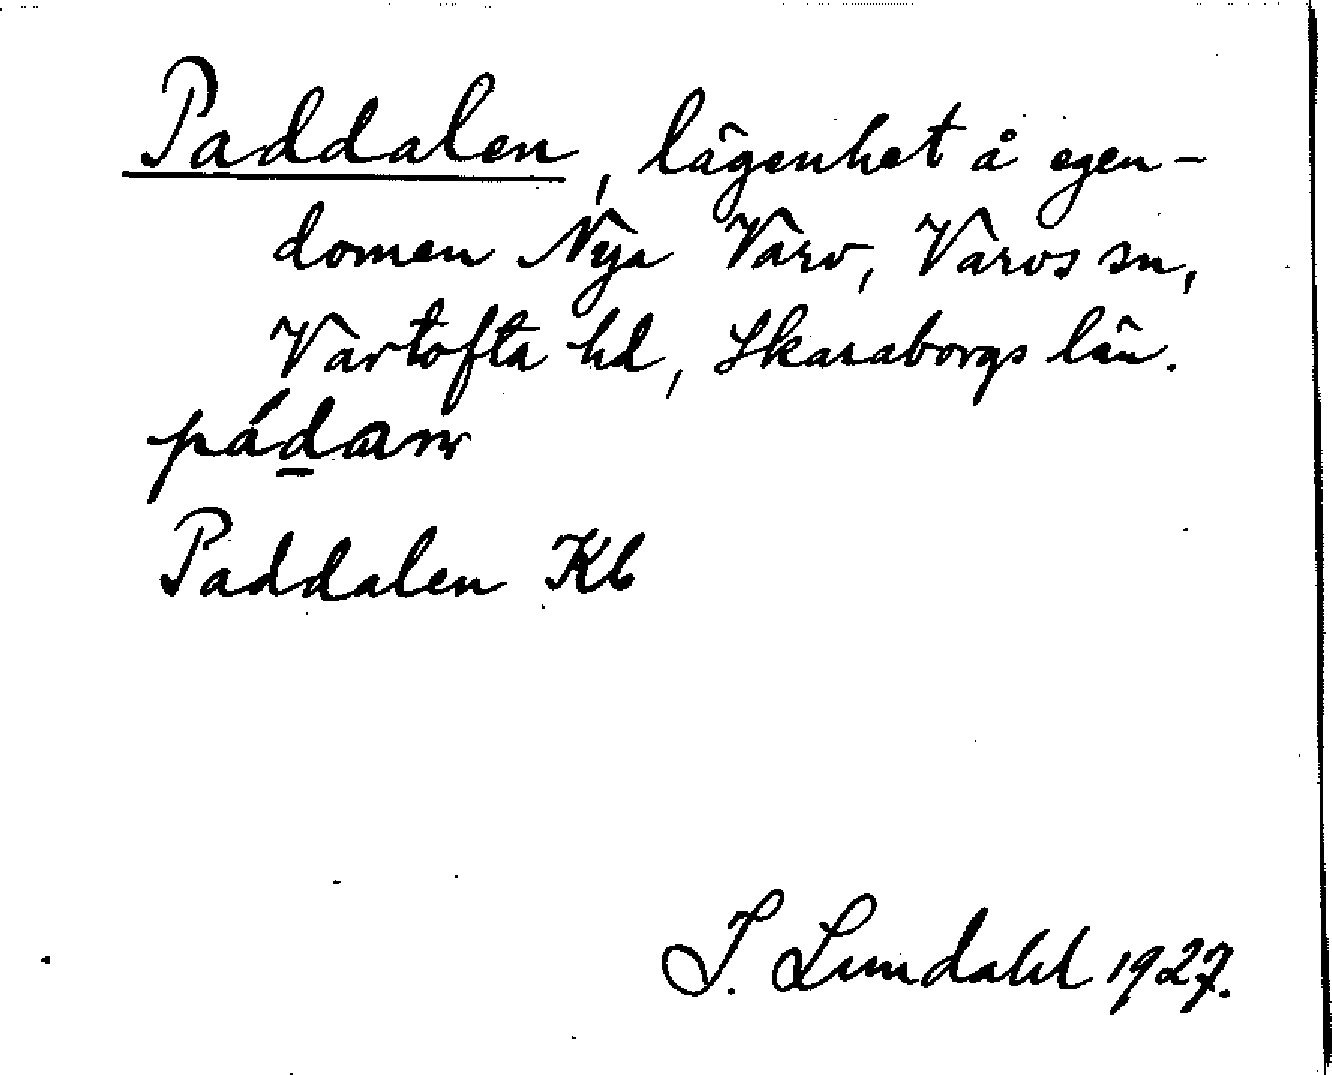 Paddalen, lägenhet å egen-
domen Nya Varv, Varvs sn,
Vartofta hd, Skaraborgs län.
pádan
Paddalen Kb
I. Lundahl 1927.